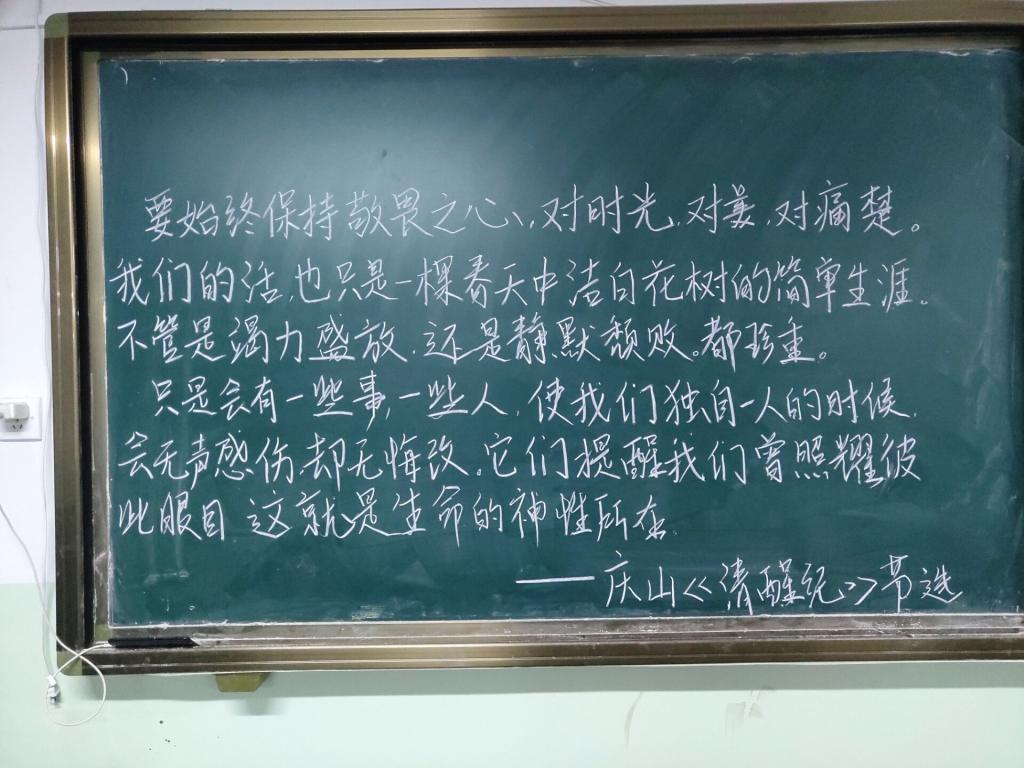 要始终保持敬畏之心,对时光,对美,对痛楚。
我们的活,也只是一棵春天中洁白花树的简单生涯。
不管是竭力盛放,还是静默颓败。都珍重。
只是会有一些事,一些人,使我们独自一人的时候,
会无声感伤,却无悔改。它们提醒我们曾照耀彼
此眼目,这就是生命的神性所在.
——庆山《清醒纪》节选